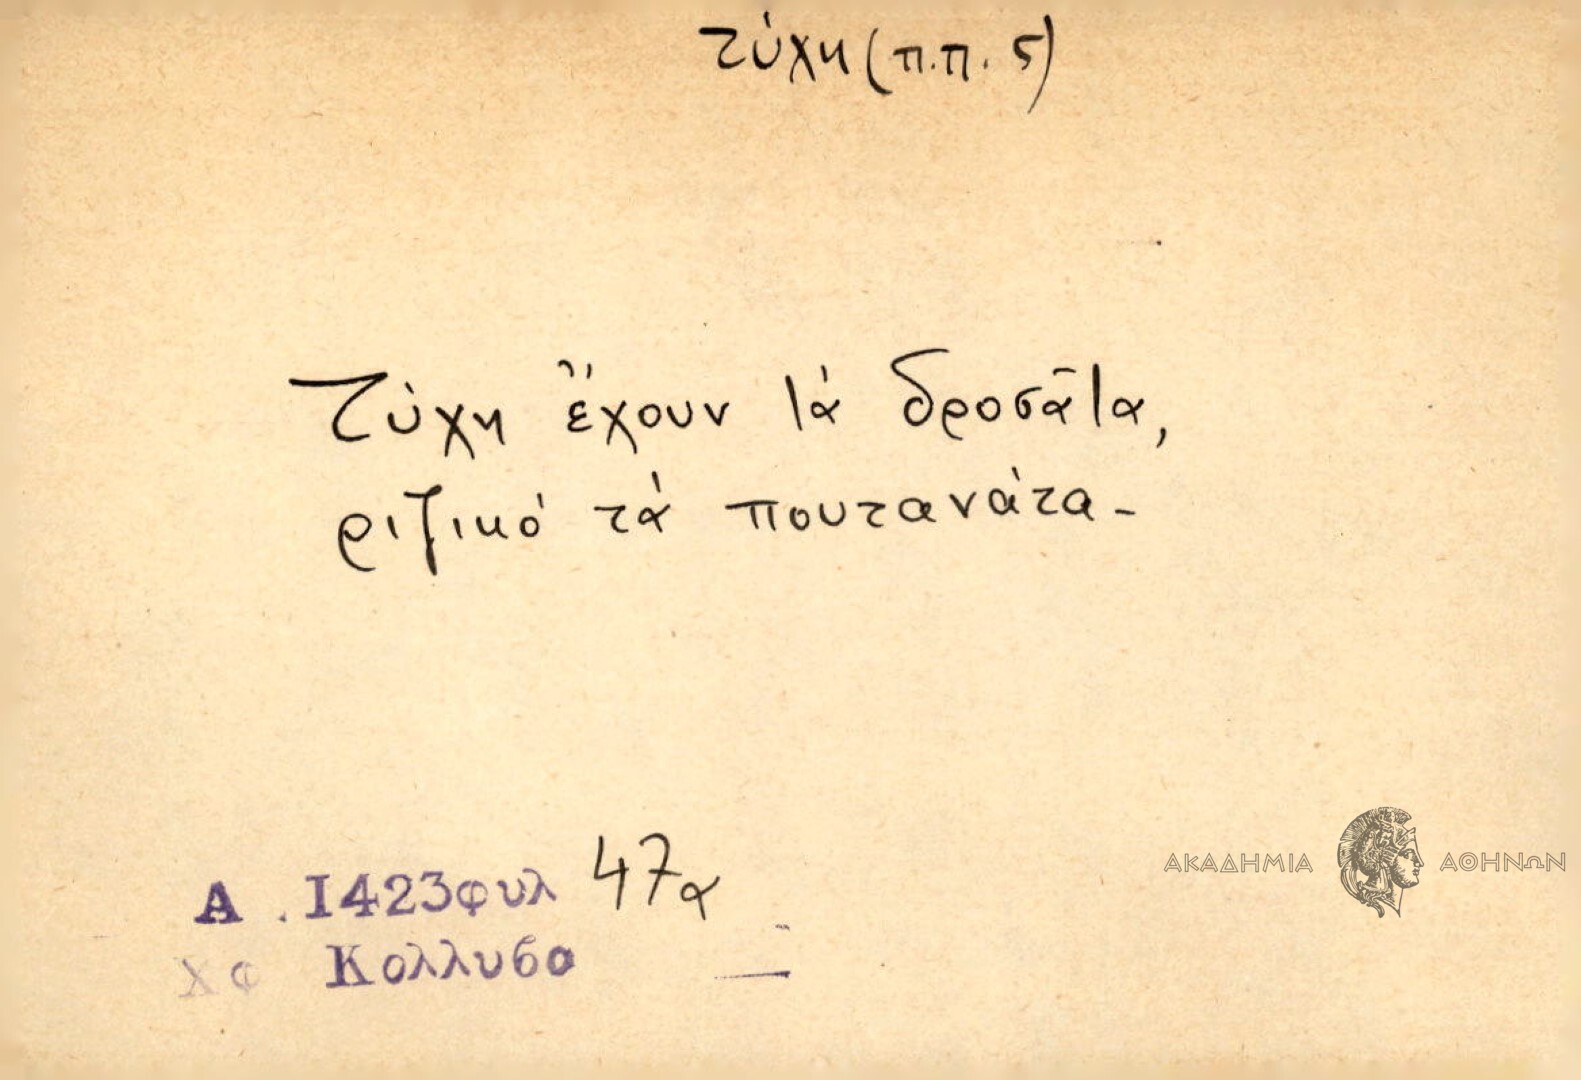 τύχη (π.π. 5)
Τύχη ἔχουν τά δροσᾶτα,
ριζικό τά πουτανάτα -
Α . 1423φυλ 47α
Χφ Κολλυβα
ΑΚΑΔΗΜΙΑ ΑΘΗΝΩΝ